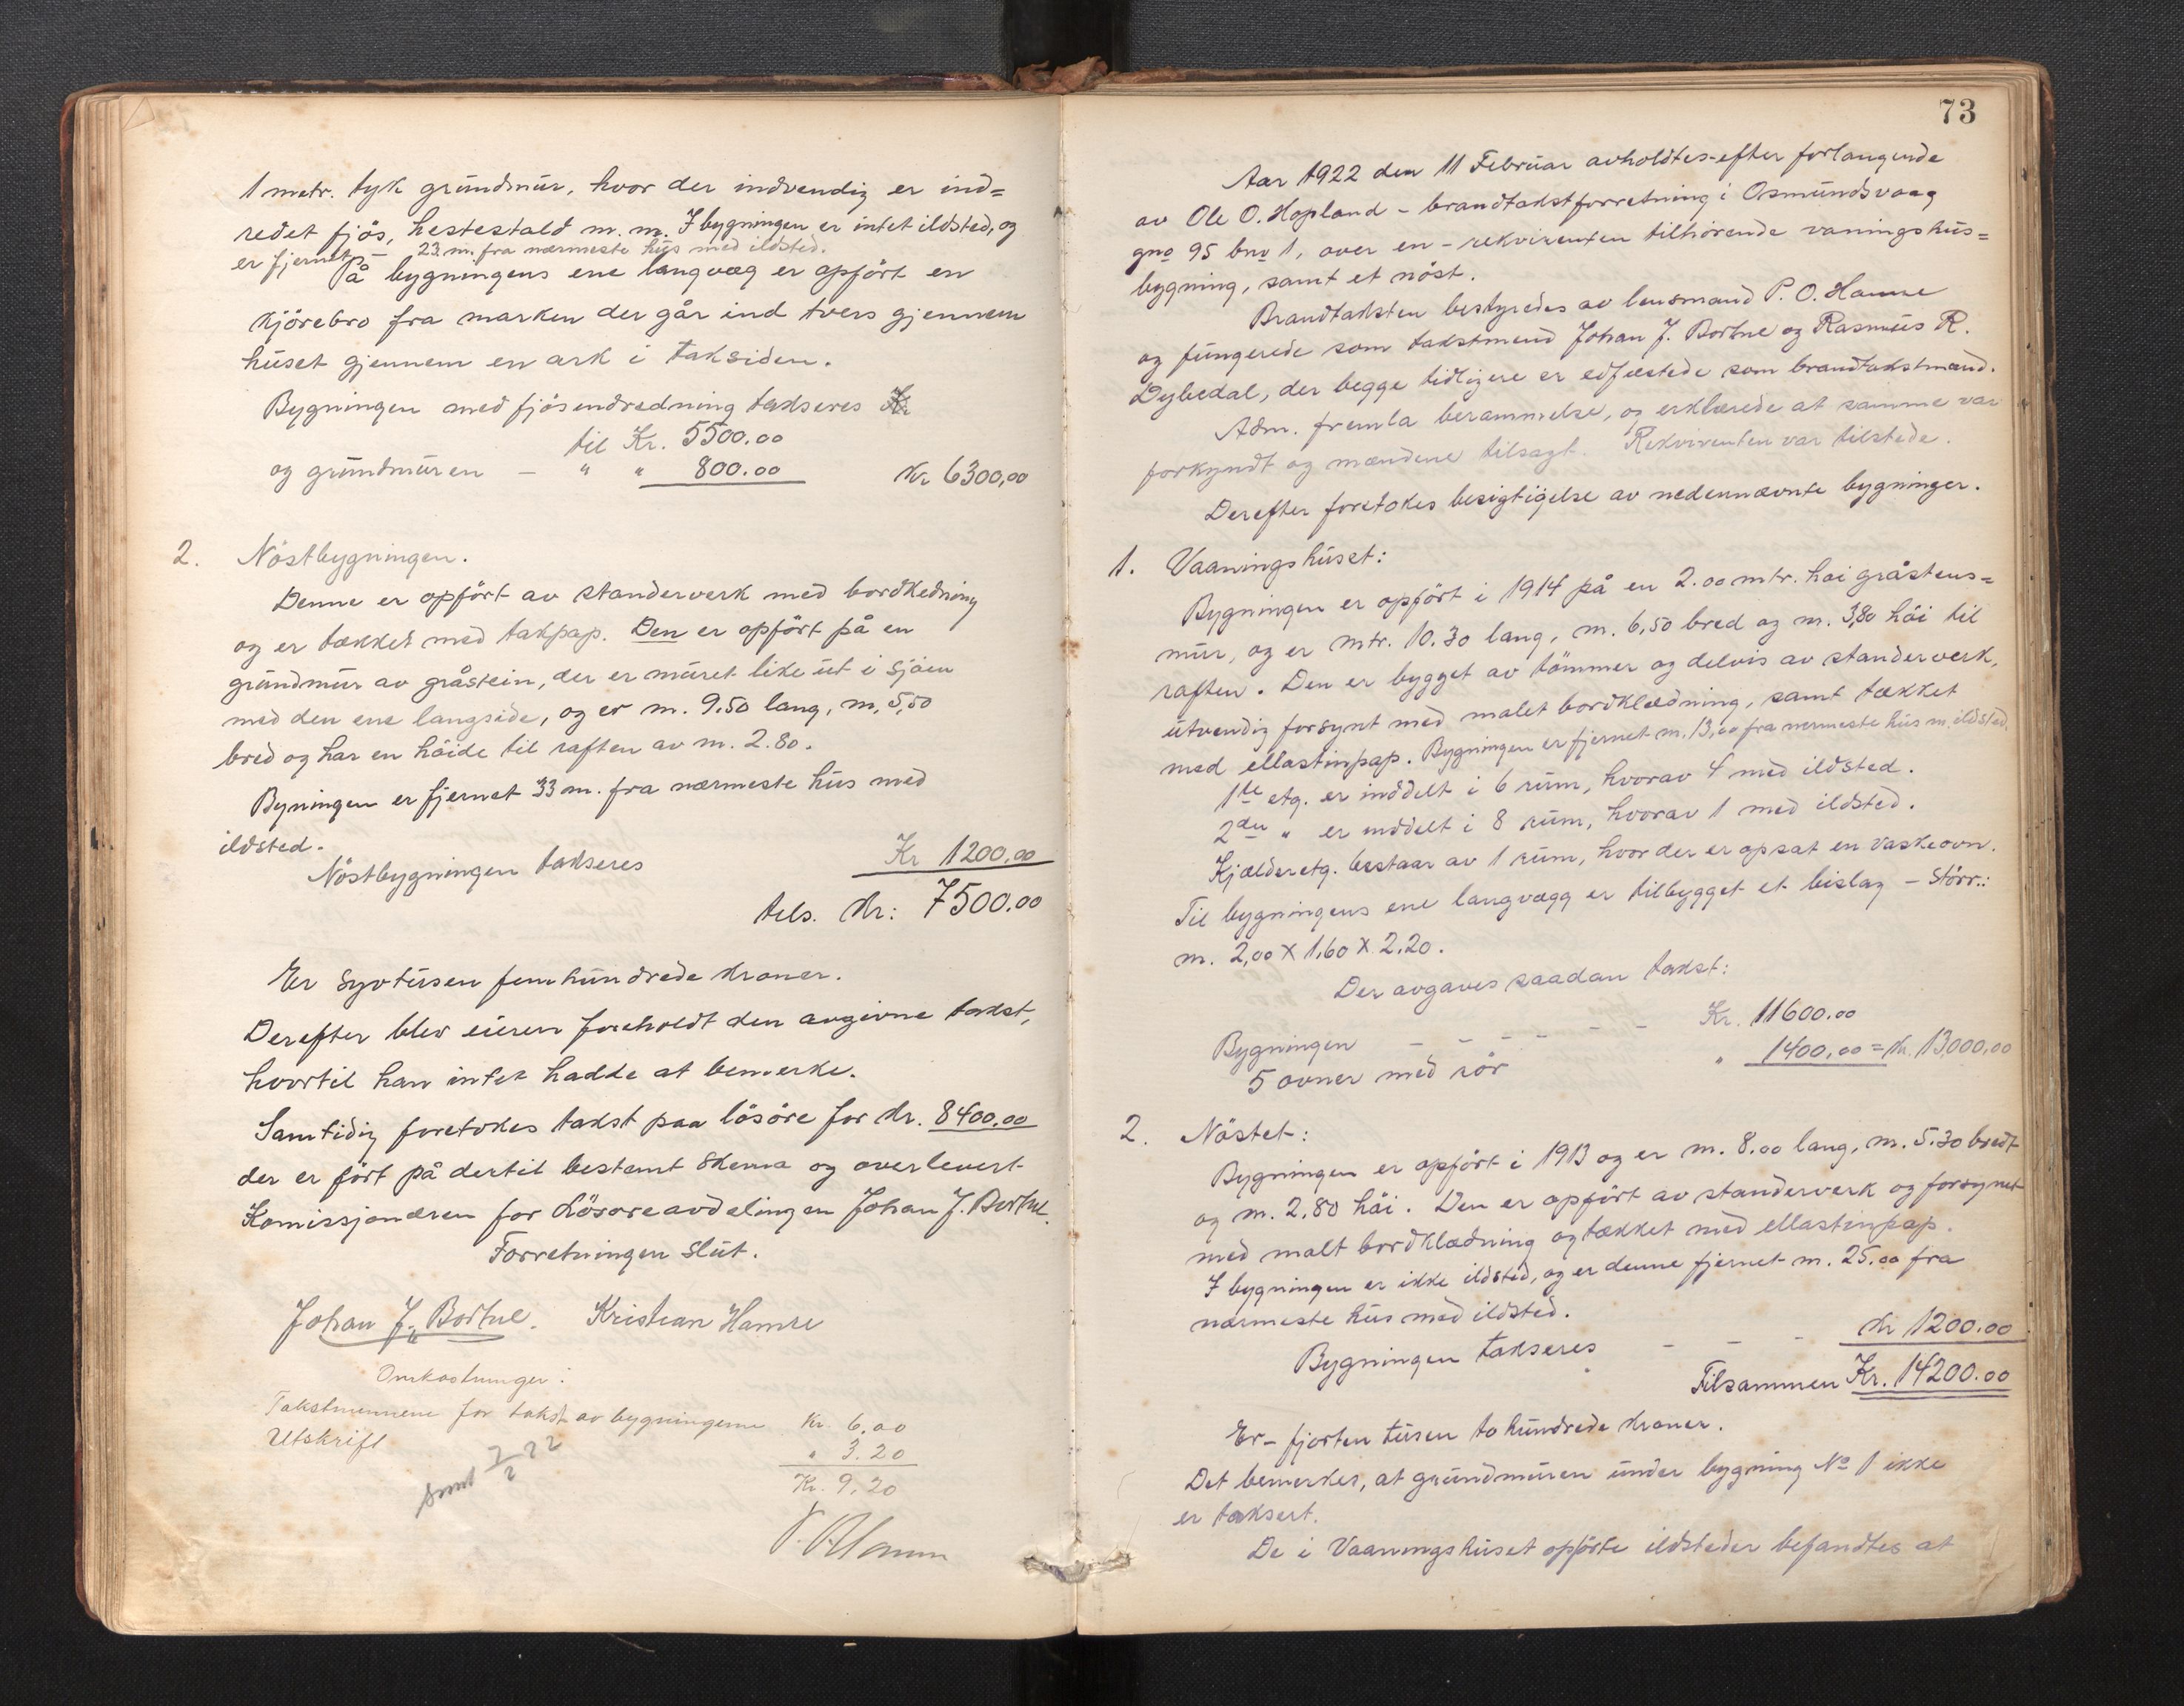 1 metr. tyk grundmur, hvor der indvendig er ind=
redet fjös, hestestald m. m. I bygningen er intet ildsted, og
er fjernet – 23 m. fra nærmeste hus med ildsted.
På bygningens ene langvæg er opfört en
kjörebro fra marken der går ind tvers gjennem
huset gjennem en ark i taksiden.
Bygningen med fjösendredning takseres
til Kr. 5500.00
og grundmuren – " " 800.00 Kr 6300,00
2. Nöstbygningen.
Denne er opfört av standerverk med bordkledning
og er tækket med takpap. Den er opfört på en
grundmur av gråstein, der er muret like ut i sjöen
med den ene langside, og er m. 9.50 lang, m, 5,50
bred og har en höide til raften av m. 2.80.
Byningen er fjernet 33 m. fra nærmeste hus med
ildsted.
Nöstbygningen takseres Kr 1200,00
tils. Kr: 7500.00
Er syvtusen femhundrede kroner.
Derefter blev eieren foreholdt den avgivne takst,
hvortil han intet hadde at bemerke.
Samtidig foretokes takst paa lösöre for Kr. 8400,00
der er fört på dertil bestemt skema og overlevert
Komissjonæren for Lösöreavdelingen Johan J. Bortne.
Forretningen slut.
Johan J. Bortne. Kristian Hamre
Omkostninger:
Takstmennene for takst av bygningerne Kr. 6,00
Utskrift " 3.20
Kr. 9,20
sendt 7/2 22
P. O. Hamre
73
Aar 1922 den 11 Februar avholdtes efter forlangende
av Ole O. Hopland – brandtakstforretning i Osmundsvaag
gno 95 bno 1, over en – rekvirenten tilhörende vaningshus=
bygning, samt et nöst.
Brandtaksten bestyredes av lensmand P. O. Hamre
og fungerede som takstmend Johan J. Bortne og Rasmus R.
Dybedal, der begge tidligere er edfæstede som brandtakstmænd.
Adm. fremla berammelse, og erklærede at samme var
forkyndt og mændene tilsagt. Rekvirenten var tilstede.
Derefter foretokes besigtigelse av nedennævnte bygninger.
1. Vaaningshuset:
Bygningen er opfört i 1914 på en 2.00 mtr. höi gråstens=
mur, og er mtr. 10.30 lang, m. 6,50 bred og m. 3,80 höi til
raften. Den er bygget av tömmer og delvis av standerverk,
utvendig forsynt med malet bordklædning, samt tækket
med ellastinpap. Bygningen er fjernet m. 13,00 fra nermeste hus m. ildsted.
1ste etg. er inddelt i 6 rum, hvorav 4 med ildsted.
2den " er inddelt i 8 rum, hvorav 1 med ildsted.
Kjælderetg. bestaar av 1 rum, hvor der er opsat en vaskeovn.
Til bygningens ene langvægg er tilbygget et bislag – störr.:
m. 2,00 X 1,60 X 2,20.
Der avgaves saadan takst:
Bygningen – – – – – Kr. 11600.00
5 ovner med rör " 1400,00 = Kr. 13,000,00
2. Nöstet:
Bygningen er opfört i 1913 og er m. 8.00 lang, m. 5.30 bredt
og m. 2,80 höi. Den er opfört av standerverk og forsynet
med malt bordklædning og tækket med ellastinpap.
I bygningen er ikke ildsted, og er denne fjernet m. 25.00 fra
nærmeste hus med ildsted.
Bygningen takseres – – Kr 1200.00
Tilsammen Kr. 14200.00
Er – fjorten tusen to hundrede kroner.
Det bemerkes, at grundmuren under bygning No 1 ikke
er taksert.
De i Vaaningshuset opförte ildsteder befandtes at